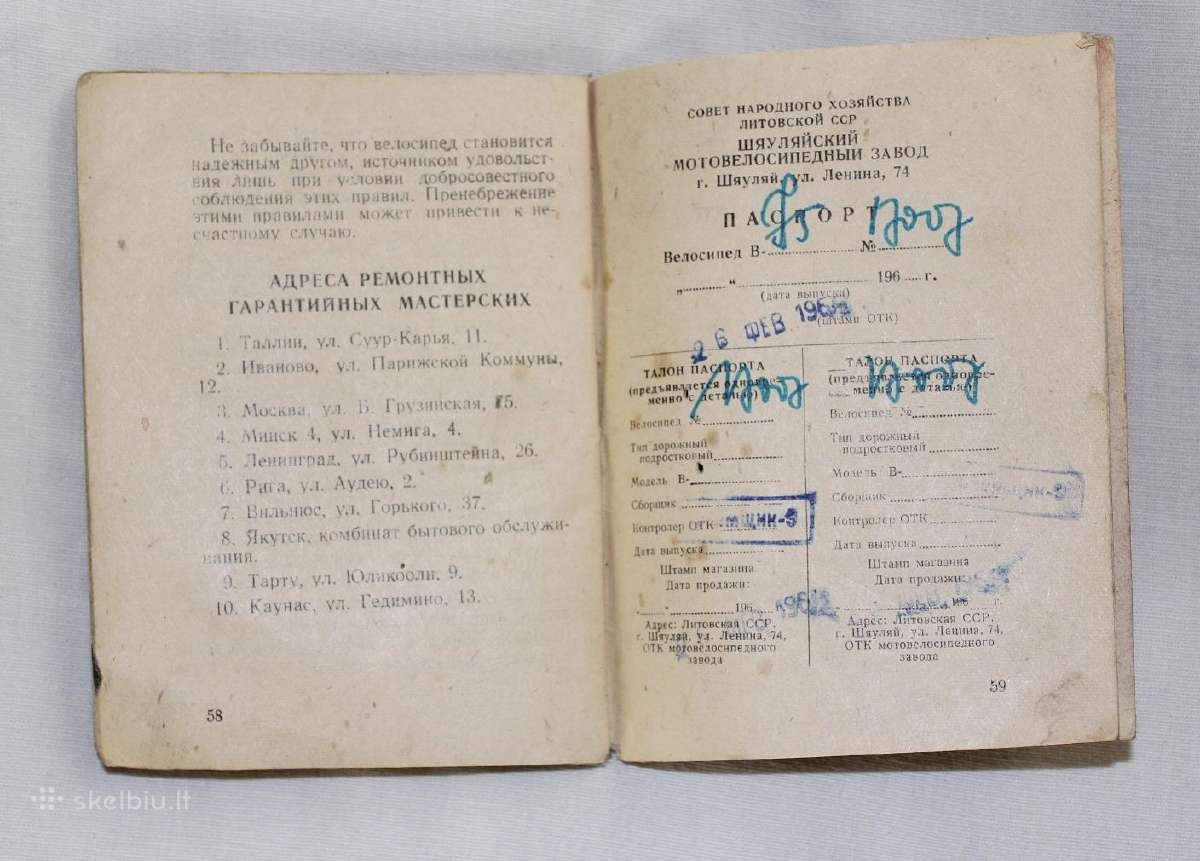 Не забывайте, что велосипед становится
надежным другом, источником удовольст-
вия лишь при условии добросовестного
соблюдения этих правил. Пренебрежение
этими правилами может привести к не-
счастному случаю.
АДРЕСА РЕМОНТНЫХ
ГАРАНТИЙНЫХ МАСТЕРСКИХ
1. Таллин, ул. Суур-Карья, 11.
2. Иваново, ул. Парижской Коммуны,
12.
3. Москва, ул. Б. Грузинская, 75.
4. Минск 4, ул. Немига, 4.
5. Ленинград, ул. Рубинштейна, 26.
6. Рига, ул. Аудею, 2.
7. Вильнюс, ул. Горького, 37.
8. Якутск, комбинат бытового обслужи-
вания.
9. Тарту, ул. Юликооли, 9.
10. Каунас, ул. Гедимино, 13.
58
СОВЕТ НАРОДНОГО ХОЗЯЙСТВА
ЛИТОВСКОЙ ССР
ШЯУЛЯЙСКИЙ
МОТОВЕЛОСИПЕДНЫЙ ЗАВОД
г. Шяуляй, ул. Ленина, 74
ПАСПОРТ
Велосипед В- №
„ “ 196 г.
(дата выпуска)
26 ФЕВ 196
(штамп ОТК)
ТАЛОН ПАСПОРТА
(предъявляется одновре-
менно с деталью)
Велосипед №
Тип дорожный
подростковый
Модель В-
Сборщик
Контролер ОТК
Дата выпуска
Штамп магазина
Дата продажи:
196
Адрес: Литовская ССР,
г. Шяуляй, ул. Ленина, 74,
ОТК мотовелосипедного
завода
ТАЛОН ПАСПОРТА
(предъявляется одновре-
менно с деталью)
Велосипед №
Тип дорожный
подростковый
Модель В-
Сборщик
Контролер ОТК
Дата выпуска
Штамп магазина
Дата продажи:
196 г.
Адрес: Литовская ССР,
г. Шяуляй, ул. Ленина, 74,
ОТК мотовелосипедного
завода
59
skelbiu.lt